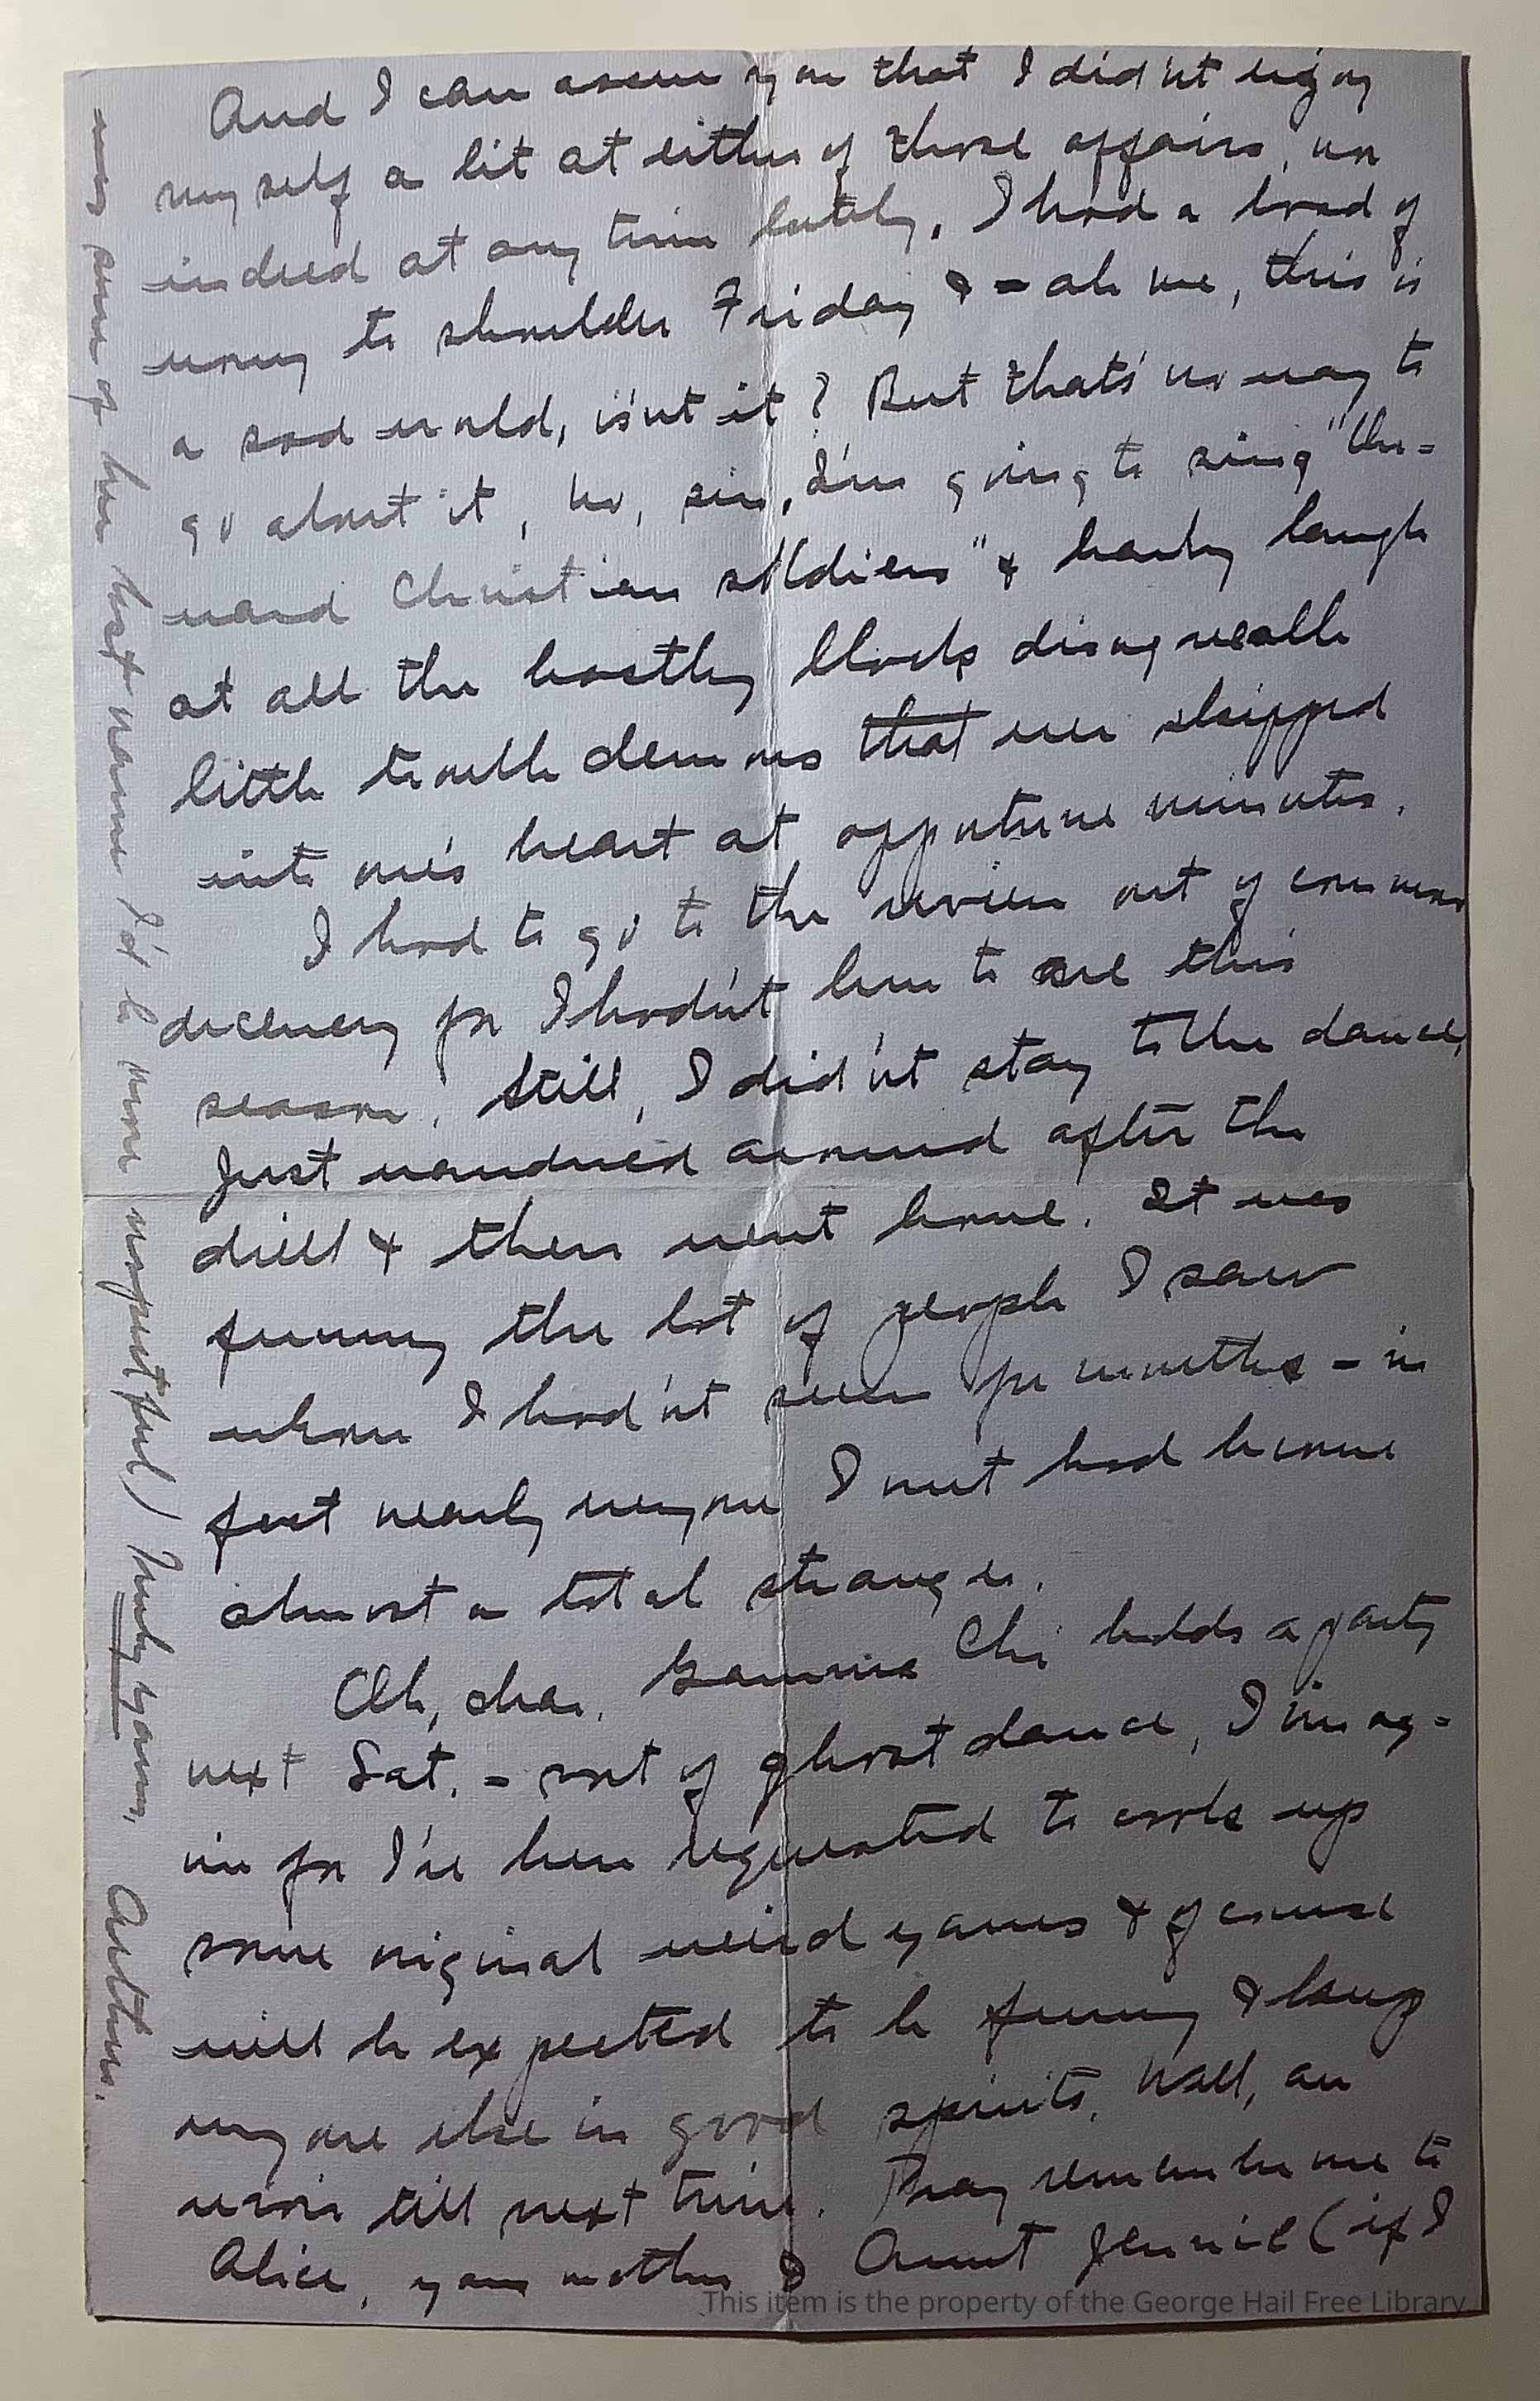 And I can assure you that I did'nt enjoy
myself a bit at either of those affairs, or
indeed at any time lately. I had a load of
worry to shoulder Friday & - ah me, this is
a sad world, is'nt it? But that's no way to
go about it, no, sir, I'm going to sing "On=
ward Christian soldiers" & harshly laugh
at all the beastly blocks disagreeable
little trouble demons that ever slipped
into one's heart at opportune minutes.
I had to go to the review out of common
decency for I had'nt been to one this
season. Still, I did'nt stay to the dance,
just wandered around after the
drill & then went home. It was
funny the lot of people I saw
whom I had'nt seen for months - in
fact nearly everyone I met had become
almost a total stranger.
Oh, dear. Gamma Chi holds a party
next Sat. - sort of ghost dance, I imag=
ine for I've been requested to cook up
some original weird games & of course
will be expected to be funny & keep
everyone else in good spirits. Well, au
revoir till next time. Pray remember me to
Alice, your mother & Aunt Jennie (if I
some of her last name I'd be more respectful) Truly yours, Arthur.
This item is the property of the George Hail Free Library